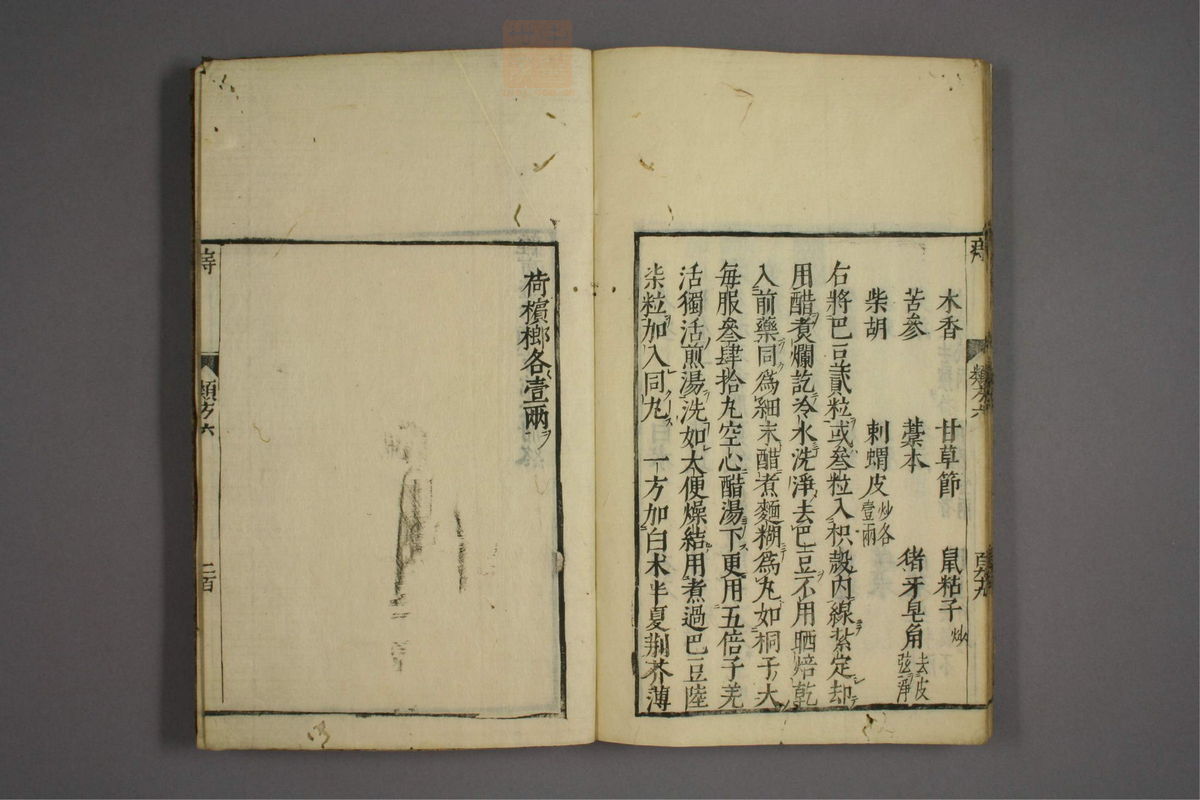 木香　甘草節　鼠粘子炒
苦參　藁本　猪牙皂角去皮弦淨
柴胡　刺蝟皮炒各壹兩
右將巴豆貳粒或叁粒入枳殼内線紮定却
用醋煮爛訖冷水洗淨去巴豆不用晒焙乾
入前藥同爲細末醋煮麵糊爲丸如桐子大
每服叁肆拾丸空心醋湯下更用五倍子羌
活獨活煎湯洗如大便燥結用煮過巴豆陸
柒粒加入同丸　一方加白术半夏荆芥薄
荷檳榔各壹兩
痔　類方六　百九十九
痔　類方六　二百